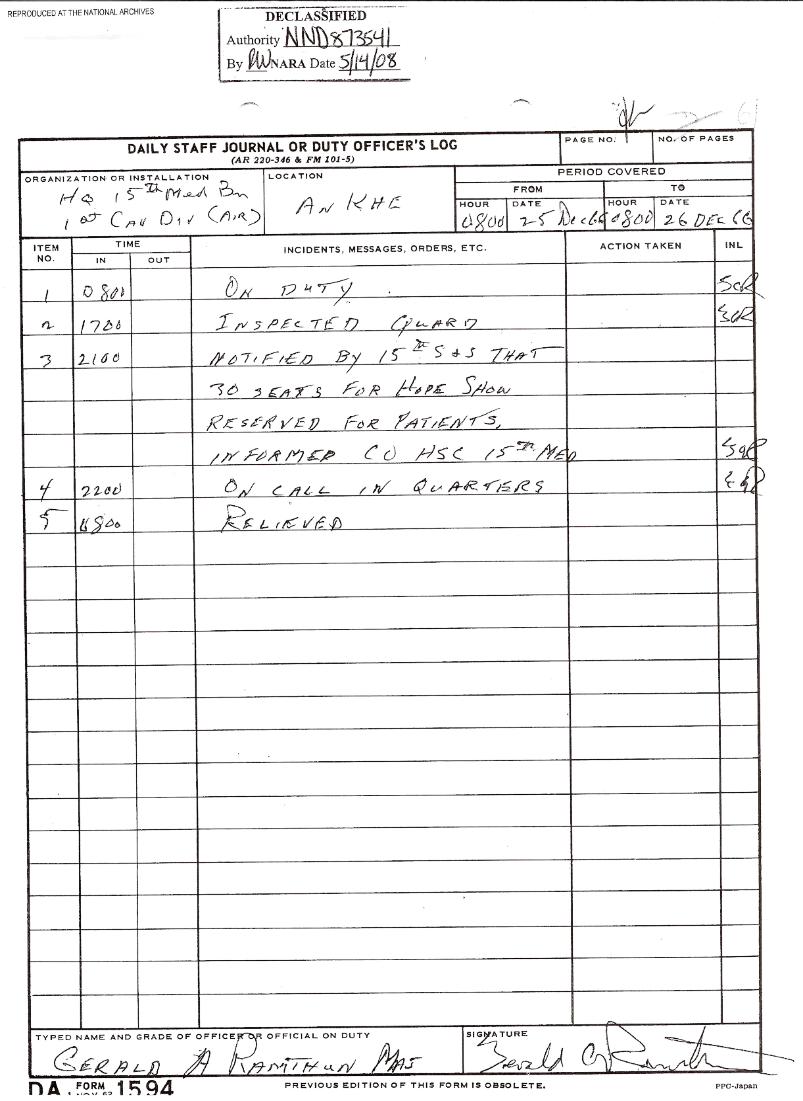 REPRODUCED AT THE NATIONAL ARCHIVES
DECLASSIFIED
Authority NND873541
By NARA Date 5/14/08
DAILY STAFF JOURNAL OR DUTY OFFICER'S LOG
(AR 220-346 & FM 101-5)
PAGE NO.
NO. OF PAGES
ORGANIZATION OR INSTALLATION
HQ 15th Med Bn
1st CAV DIV (AIR)
LOCATION
AN KHE
PERIOD COVERED
FROM TO
HOUR DATE HOUR DATE
0800 25 Dec 66 0800 26 DEC 66
ITEM NO. TIME INCIDENTS, MESSAGES, ORDERS, ETC. ACTION TAKEN INL
IN OUT
1 0800 ON DUTY
2 1700 INSPECTED GUARD
3 2100 NOTIFIED BY 15TH S&S THAT
30 SEATS FOR HOPE SHOW
RESERVED FOR PATIENTS,
INFORMED CO HSC 15TH MED
4 2200 ON CALL IN QUARTERS
5 0800 RELIEVED
TYPED NAME AND GRADE OF OFFICER OR OFFICIAL ON DUTY
GERALD A RAMTHUN MAJ
SIGNATURE
Gerald
DA FORM 1594
1 NOV 62
PREVIOUS EDITION OF THIS FORM IS OBSOLETE.
PPC-Japan